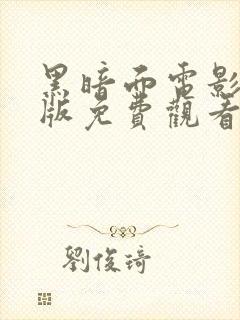 黑暗面電影
版免費觀看
劉俊琦